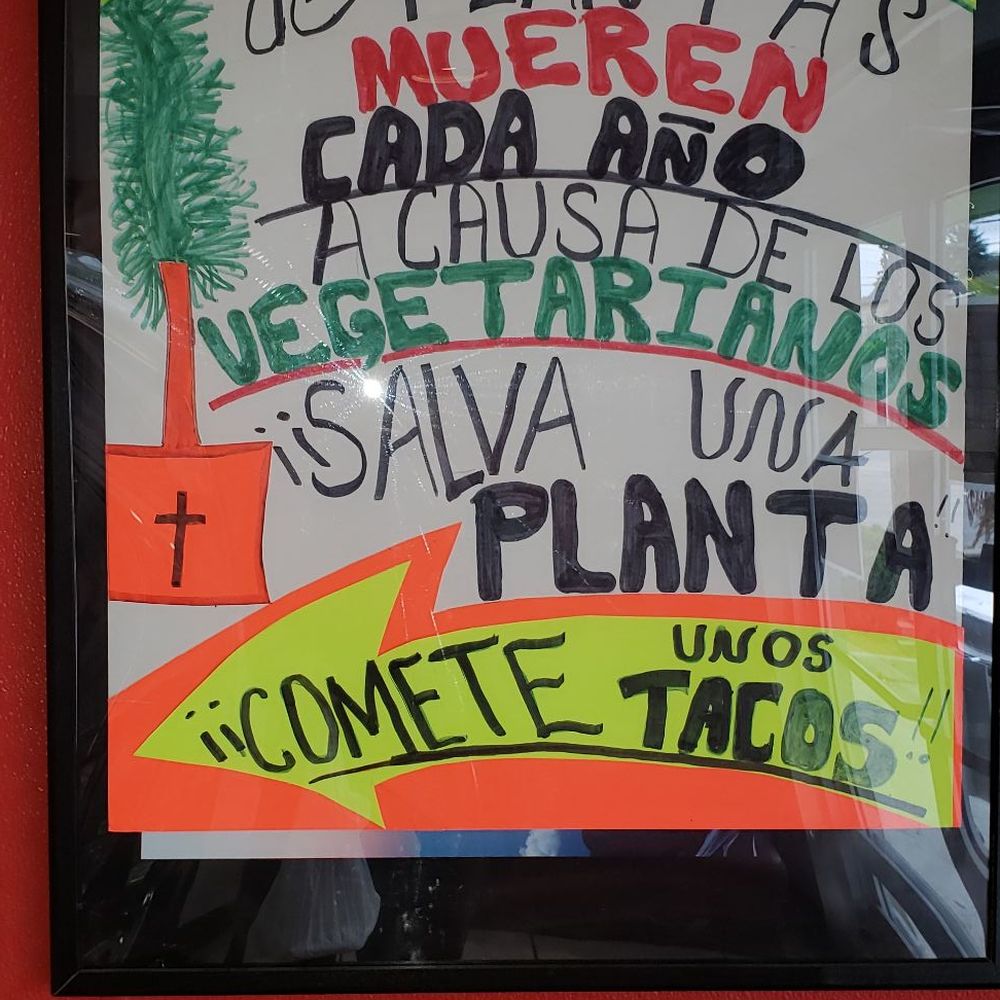 DE PLANTAS
MUEREN
CADA AÑO
A CAUSA DE LOS
VEGETARIANOS
¡¡SALVA UNA
PLANTA!!
¡¡COMETE UNOS
TACOS!!